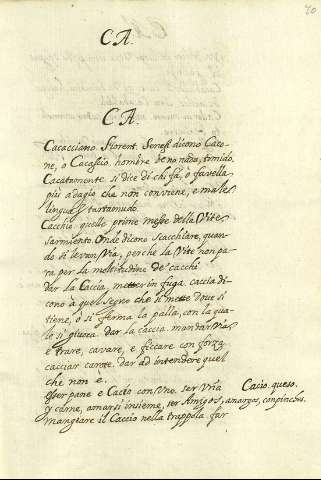 70
CA.
CA.
Cacacciano. Fiorent. Senese dicono Caco-
ne, ò Cacasso, hombre de no nada, timido.
Cacatamente. si dice di chi fà, ò favella
più adagio che non conviene, e male
lingue tartamudo.
Cacchio quelle prime messe della Vite
Sarmiento. Onde dicono scacchiare, quan-
do si levan Via, perche la Vite non pa-
ra per la moltitudine de cacchi
dar la Caccia, metter in fuga. caccia di-
cono à quel segno che si mette dove si
tiene, ò si ferma la palla, con la qua-
le si giuoca. dar la caccia. mandar Via
e trare, cavare, e ficcare con forza
cacciar carote. dar ad intendere quel
che non e.
Esser pane e Cacio con uno. ser Uña
y carne, amarsi insieme, ser Amigos,
Cacio, queso.
mangiare il Caccio nella trappola. far